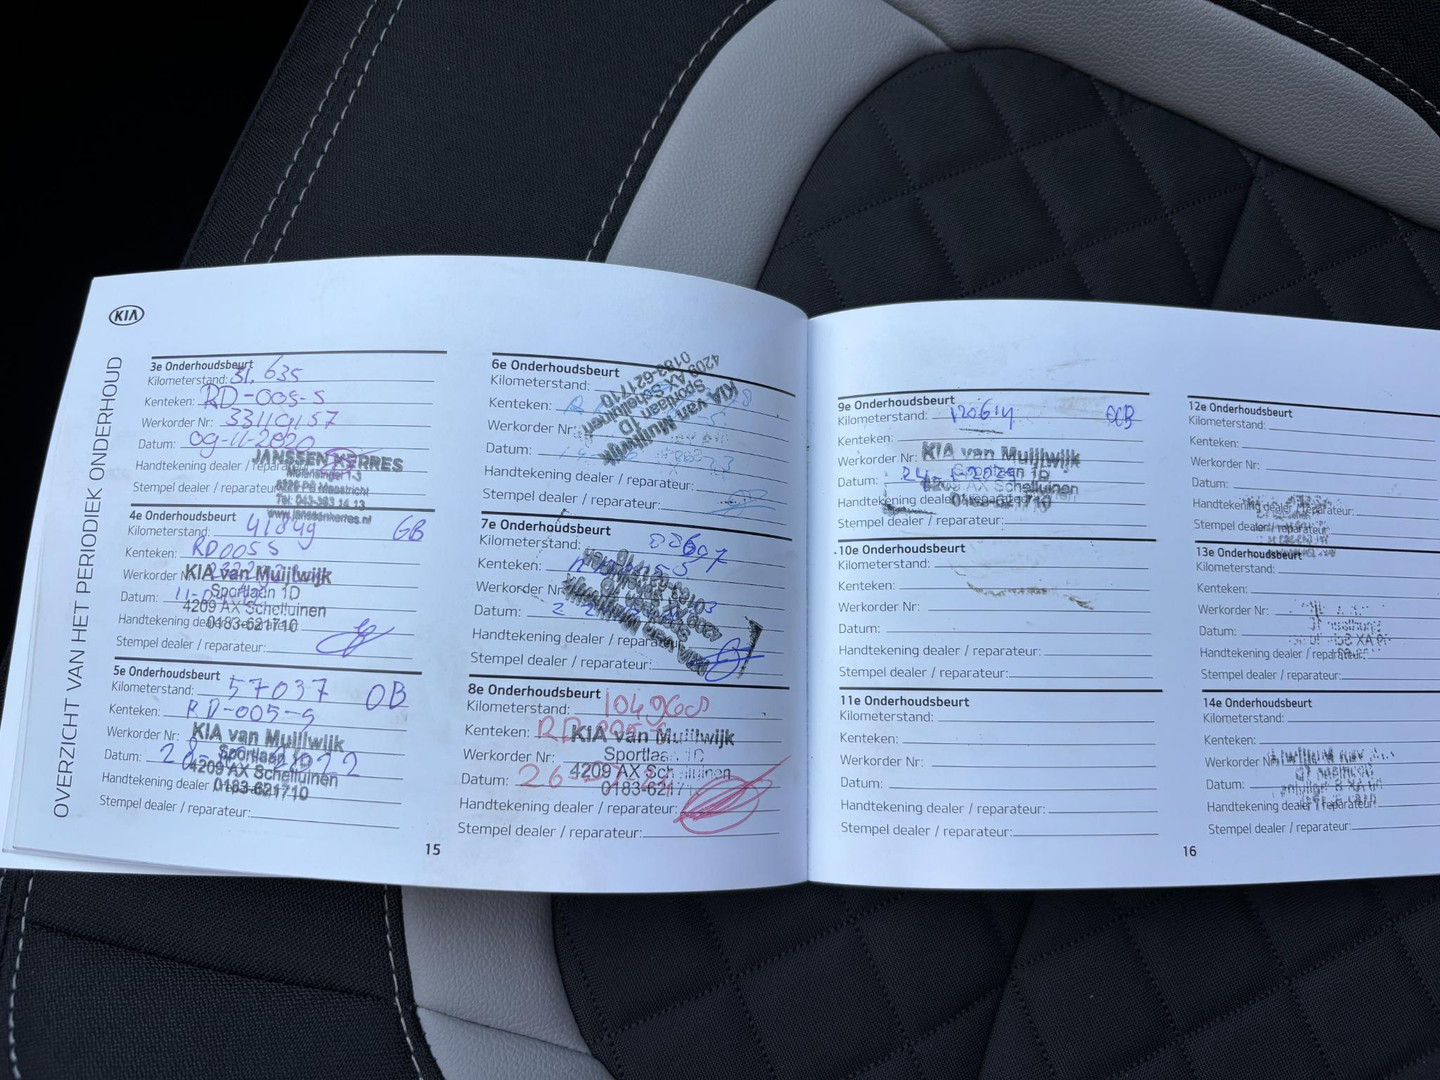 KIA
OVERZICHT VAN HET PERIODIEK ONDERHOUD
3e Onderhoudsbeurt
Kilometerstand: 31.635
Kenteken: RD-005-S
Werkorder Nr: 33119157
Datum: 09-11-2020
Handtekening dealer / reparateur:
JANSSEN KERRES
Molensingel 1-3
6229 PB Maastricht
Tel. 043-363 14 13
Stempel dealer / reparateur:
www.janssenkerres.nl
4e Onderhoudsbeurt
Kilometerstand: 41849 GB
Kenteken: RD005S
Werkorder Nr:
KIA van Muijlwijk
Datum: 11-
Sportlaan 1D
4209 AX Schelluinen
Handtekening dealer / reparateur:
0183-621710
Stempel dealer / reparateur:
5e Onderhoudsbeurt
Kilometerstand: 57037 OB
Kenteken: RD-005-S
Werkorder Nr:
KIA van Muijlwijk
Datum: 2022
Sportlaan 1D
4209 AX Schelluinen
Handtekening dealer
0183-621710
Stempel dealer / reparateur:
6e Onderhoudsbeurt
Kilometerstand:
Kenteken:
Werkorder Nr:
Datum:
KIA van Muijlwijk
Sportlaan 1D
4209 AX Schelluinen
0183-621710
Handtekening dealer / reparateur:
Stempel dealer / reparateur:
7e Onderhoudsbeurt
Kilometerstand: 88607
Kenteken:
Werkorder Nr:
Datum:
KIA van Muijlwijk
Handtekening dealer / reparateur:
Stempel dealer / reparateur:
8e Onderhoudsbeurt
Kilometerstand: 104968
Kenteken: RD 005 S
KIA van Muijlwijk
Werkorder Nr:
Sportlaan 1D
Datum: 26
4209 AX Schelluinen
0183-6217
Handtekening dealer / reparateur:
Stempel dealer / reparateur:
15
9e Onderhoudsbeurt
Kilometerstand: 120614 OCB
Kenteken:
Werkorder Nr:
KIA van Muijlwijk
Datum: 24
Sportlaan 1D
4209 AX Schelluinen
Handtekening dealer / reparateur:
0183-621710
Stempel dealer / reparateur:
10e Onderhoudsbeurt
Kilometerstand:
Kenteken:
Werkorder Nr:
Datum:
Handtekening dealer / reparateur:
Stempel dealer / reparateur:
11e Onderhoudsbeurt
Kilometerstand:
Kenteken:
Werkorder Nr:
Datum:
Handtekening dealer / reparateur:
Stempel dealer / reparateur:
12e Onderhoudsbeurt
Kilometerstand:
Kenteken:
Werkorder Nr:
Datum:
Handtekening dealer / reparateur:
Stempel dealer / reparateur
13e Onderhoudsbeurt
Kilometerstand:
Kenteken:
Werkorder Nr:
Datum:
Handtekening dealer / reparateur:
Stempel dealer / reparateur:
14e Onderhoudsbeurt
Kilometerstand:
Kenteken:
Werkorder Nr:
Datum:
Handtekening dealer / reparateur:
Stempel dealer / reparateur:
16